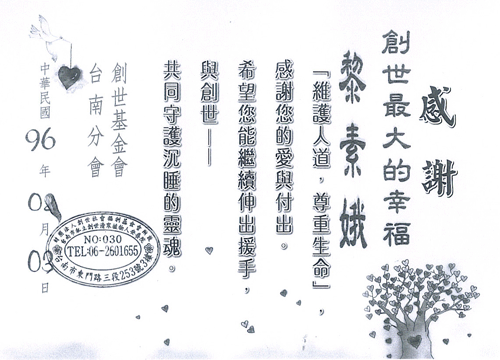 感謝
創世最大的幸福
黎素娥
「維護人道，尊重生命」，
感謝您的愛與付出。
希望您能繼續伸出援手，
與創世——
共同守護沉睡的靈魂。
創世基金會
台南分會
中華民國96年02月03日
NO:030
TEL:06-2601655
台南市東門路三段253號3樓